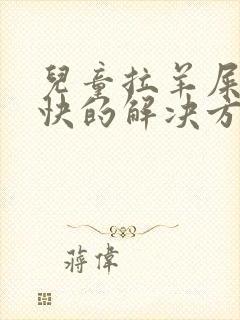 兒童拉羊屎
快的解决方
蔣偉